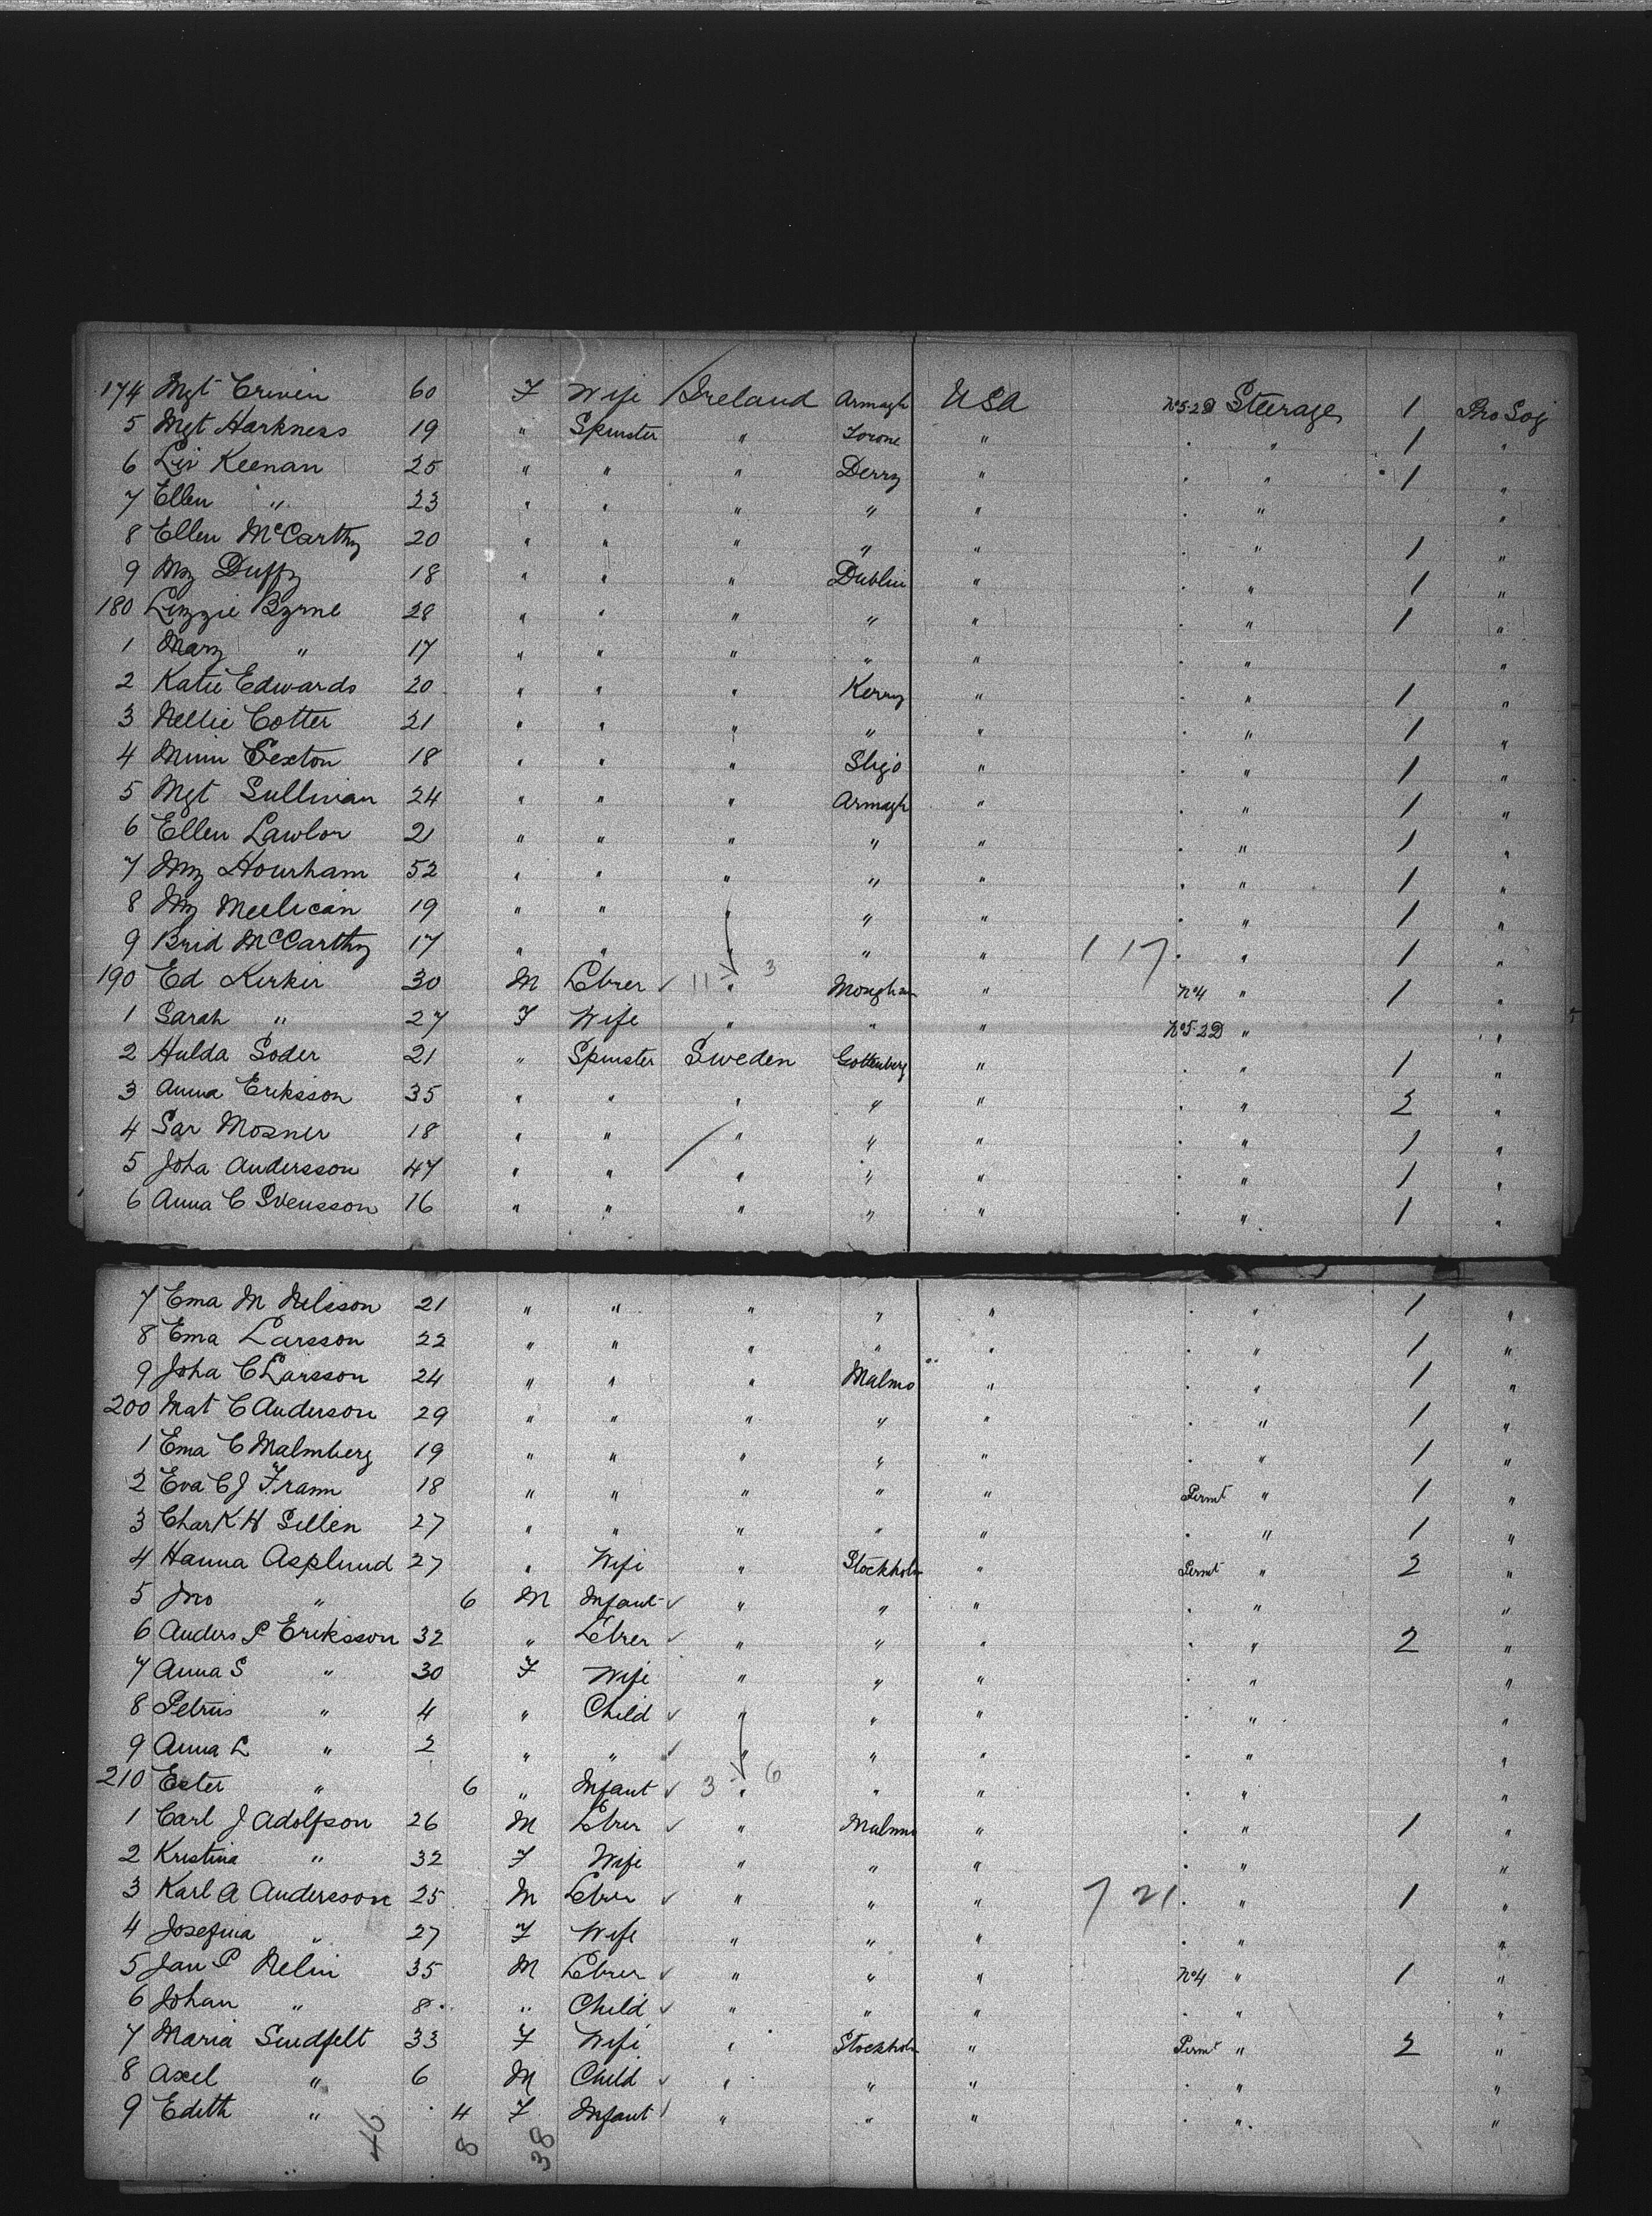 174 Mgt Crinen 60 F Wife Ireland Armagh USA No 5.2D Steerage 1 Pro Soj
5 Mgt Harkness 19 " Spinster " Tyrone " . " 1 "
6 Liz Keenan 25 " " " Derry " . " 1 "
7 Ellen " 23 " " " " " . " "
8 Ellen McCarthy 20 " " " " " . " 1 "
9 My Duffy 18 " " " Dublin " . " 1 "
180 Lizzie Byrne 28 " " " " " . " 1 "
1 Mary " 17 " " " " " . " "
2 Katie Edwards 20 " " " Kerry " . " 1 "
3 Nellie Cotter 21 " " " " " . " 1 "
4 Minn Sexton 18 " " " Sligo " . " 1 "
5 Mgt Sullivan 24 " " " Armagh " . " 1 "
6 Ellen Lawlor 21 " " " " " . " 1 "
7 My Hourham 52 " " " " " . " 1 "
8 My Meelican 19 " " " " " . " 1 "
9 Brid McCarthy 17 " " " " " 1 17 . " 1 "
190 Ed Kerker 30 M Lbrer ✓ 11 " 3 Monghan " No 4 " 1 "
1 Sarah " 27 F Wife " " " No 5.2D " "
2 Hulda Soder 21 " Spinster Sweden Gottenberg " . " 1 "
3 Anna Eriksson 35 " " " " " . " 2 "
4 Sar Mosner 18 " " " " " . " 1 "
5 Joha Andersson 47 " " " " " . " 1 "
6 Anna C Svensson 16 " " " " " . " 1 "
7 Ema M Nelsson 21 " " " " " . " 1 "
8 Ema Larsson 22 " " " " " . " 1 "
9 Joha C Larsson 24 " " " Malmo " . " 1 "
200 Mat C Anderson 29 " " " " " . " 1 "
1 Ema C Malmberg 19 " " " " " . " 1 "
2 Eva C J Framm 18 " " " " " Permt " 1 "
3 Char K H Sillen 27 " " " " " . " 1 "
4 Hanna Asplund 27 " Wife " Stockholm " Permt " 2 "
5 Jno " 6 M Infant ✓ " " " . " "
6 Anders P Eriksson 32 " Lbrer ✓ " " " . " 2 "
7 Anna S " 30 F Wife " " " . " "
8 Petrus " 4 " Child ✓ " " " . " "
9 Anna L " 2 " " ✓ " " " . " "
210 Ester " 6 " Infant ✓ 3 " 6 " " . " "
1 Carl J Adolfson 26 M Lbrer ✓ " Malmo " . " 1 "
2 Kristina " 32 F Wife " " " . " "
3 Karl A Andersson 25 M Lbrer ✓ " " " 7 21 . " 1 "
4 Josefina " 27 F Wife " " " . " "
5 Jan P Nelin 35 M Lbrer ✓ " " " No 4 " 1 "
6 Johan " 8 " Child ✓ " " " . " "
7 Maria Sundfelt 33 F Wife " Stockholm " Permt " 2 "
8 Axel " 6 M Child ✓ " " " . " "
9 Edith " 4 F Infant " " " . " "
46 8 38